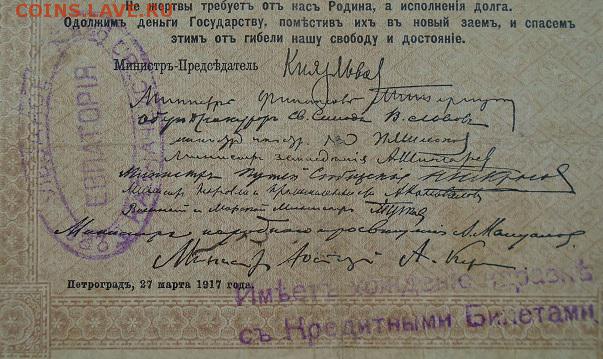 COINS.LAVE.RU
Не жертвы требует отъ насъ Родина, а исполненія долга.
Одолжимъ деньги Государству, помѣстивъ ихъ въ новый заемъ, и спасемъ
этимъ отъ гибели нашу свободу и достояніе.
Министръ-Предсѣдатель Князь Львов
Министръ Финансовъ Терещенко
Оберъ-Прокуроръ Св. Синода В. Львовъ
Министръ П. Милюков
Министръ земледѣлія А. Шингарев
Министръ Путей Сообщенія Н. Некрасов
Министръ Торговли и Промышленности А. Коновалов
Военный и Морской Министръ Гучков
Министръ народнаго просвѣщенія А. Мануйлов
Министръ Юстиціи А. Кер
ЕВПАТОРІЯ
Петроградъ, 27 марта 1917 года.
Имѣетъ хожденіе наравнѣ
съ Кредитными Билетами